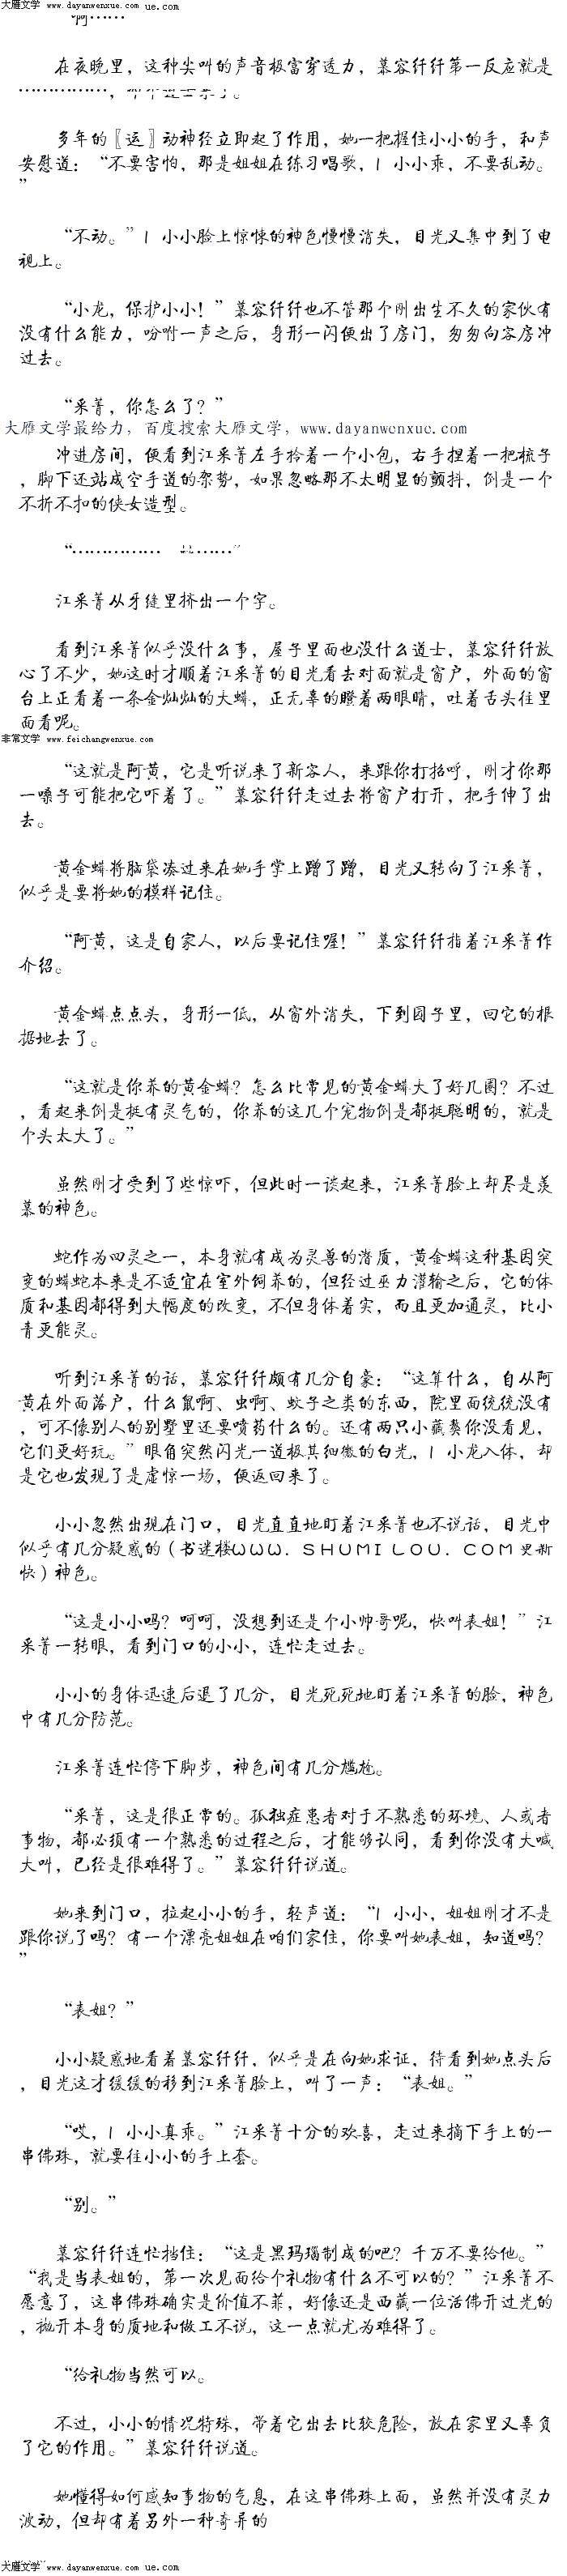 大雁文学 www.dayanwenxue.com ue.com
“啊……
在夜晚里，这种尖叫的声音极富穿透力，慕容纤纤第一反应就是
……………，
多年的〖运〗动神经立即起了作用，她一把握住小小的手，和声
安慰道：“不要害怕，那是姐姐在练习唱歌，1小小乖，不要乱动。
”
“不动。”1小小脸上惊悚的神色慢慢消失，目光又集中到了电
视上。
“小龙，保护小小！”慕容纤纤也不管那个刚出生不久的家伙有
没有什么能力，吩咐一声之后，身形一闪便出了房门，匆匆向客房冲
过去。
“采菁，你怎么了？”
大雁文学最给力，百度搜索大雁文学，www.dayanwenxue.com
冲进房间，便看到江采菁左手拎着一个小包，右手捏着一把梳子
，脚下还站成空手道的架势，如果忽略那不太明显的颤抖，倒是一个
不折不扣的侠女造型。
“…………… ……”
江采菁从牙缝里挤出一个字。
看到江采菁似乎没什么事，屋子里面也没什么道士，慕容纤纤放
心了不少，她这时才顺着江采菁的目光看去对面就是窗户，外面的窗
台上正看着一条金灿灿的大蟒，正无辜的瞪着两眼睛，吐着舌头往里
面看呢。
非常文学 www.feichangwenxue.com
“这就是阿黄，它是听说来了新客人，来跟你打招呼，刚才你那
一嗓子可能把它吓着了。”慕容纤纤走过去将窗户打开，把手伸了出
去。
黄金蟒将脑袋凑过来在她手掌上蹭了蹭，目光又转向了江采菁，
似乎是要将她的模样记住。
“阿黄，这是自家人，以后要记住喔！”慕容纤纤指着江采菁作
介绍。
黄金蟒点点头，身形一低，从窗外消失，下到园子里，回它的根
据地去了。
“这就是你养的黄金蟒？怎么比常见的黄金蟒大了好几圈？不过
，看起来倒是挺有灵气的，你养的这几个宠物倒是都挺聪明的，就是
个头太大了。”
虽然刚才受到了些惊吓，但此时一谈起来，江采菁脸上却尽是羡
慕的神色。
蛇作为四灵之一，本身就有成为灵兽的潜质，黄金蟒这种基因突
变的蟒蛇本来是不适宜在室外饲养的，但经过巫力灌输之后，它的体
质和基因都得到大幅度的改变，不但身体着实，而且更加通灵，比小
青更能灵。
听到江采菁的话，慕容纤纤颇有几分自豪：“这算什么，自从阿
黄在外面落户，什么鼠啊、虫啊、蚊子之类的东西，院里面统统没有
，可不像别人的别墅里还要喷药什么的。还有两只小藏獒你没看见，
它们更好玩。”眼角突然闪光一道极其细微的白光，1小龙入体，却
是它也发现了是虚惊一场，便返回来了。
小小忽然出现在门口，目光直直地盯着江采菁也不说话，目光中
似乎有几分疑惑的（书迷楼WWW.SHUMILOU.COM更新
快）神色。
“这是小小吗？呵呵，没想到还是个小帅哥呢，快叫表姐！”江
采菁一转眼，看到门口的小小，连忙走过去。
小小的身体迅速后退了几分，目光死死地盯着江采菁的脸，神色
中有几分防范。
江采菁连忙停下脚步，神色间有几分尴尬。
“采菁，这是很正常的。孤独症患者对于不熟悉的环境、人或者
事物，都必须有一个熟悉的过程之后，才能够认同，看到你没有大喊
大叫，已经是很难得了。”慕容纤纤说道。
她来到门口，拉起小小的手，轻声道：“1小小，姐姐刚才不是
跟你说了吗？有一个漂亮姐姐在咱们家住，你要叫她表姐，知道吗？
”
“表姐？”
小小疑惑地看着慕容纤纤，似乎是在向她求证，待看到她点头后
，目光这才缓缓的移到江采菁脸上，叫了一声：“表姐。”
“哎，1小小真乖。”江采菁十分的欢喜，走过来摘下手上的一
串佛珠，就要往小小的手上套。
“别。”
慕容纤纤连忙挡住：“这是黑玛瑙制成的吧？千万不要给他。”
“我是当表姐的，第一次见面给个礼物有什么不可以的？”江采菁不
愿意了，这串佛珠确实是价值不菲，好像还是西藏一位活佛开过光的
，抛开本身的质地和做工不说，这一点就尤为难得了。
“给礼物当然可以。
不过，小小的情况特殊，带着它出去比较危险，放在家里又辜负
了它的作用。”慕容纤纤说道。
她懂得如何感知事物的气息，在这串佛珠上面，虽然并没有灵力
波动，但却有着另外一种奇异的
大雁文学 www.dayanwenxue.com ue.com